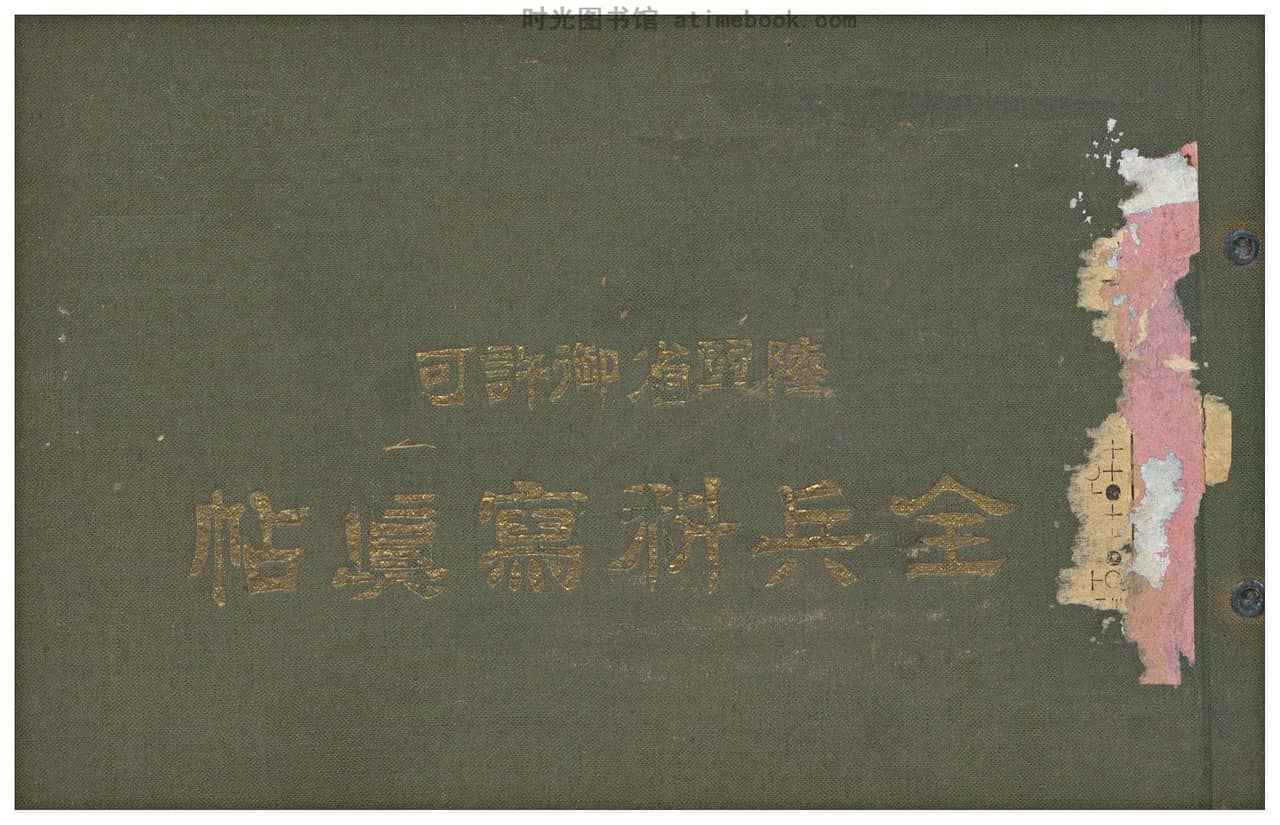 时光图书馆 atimebook.com
陸軍省御許可
全兵科寫眞帖